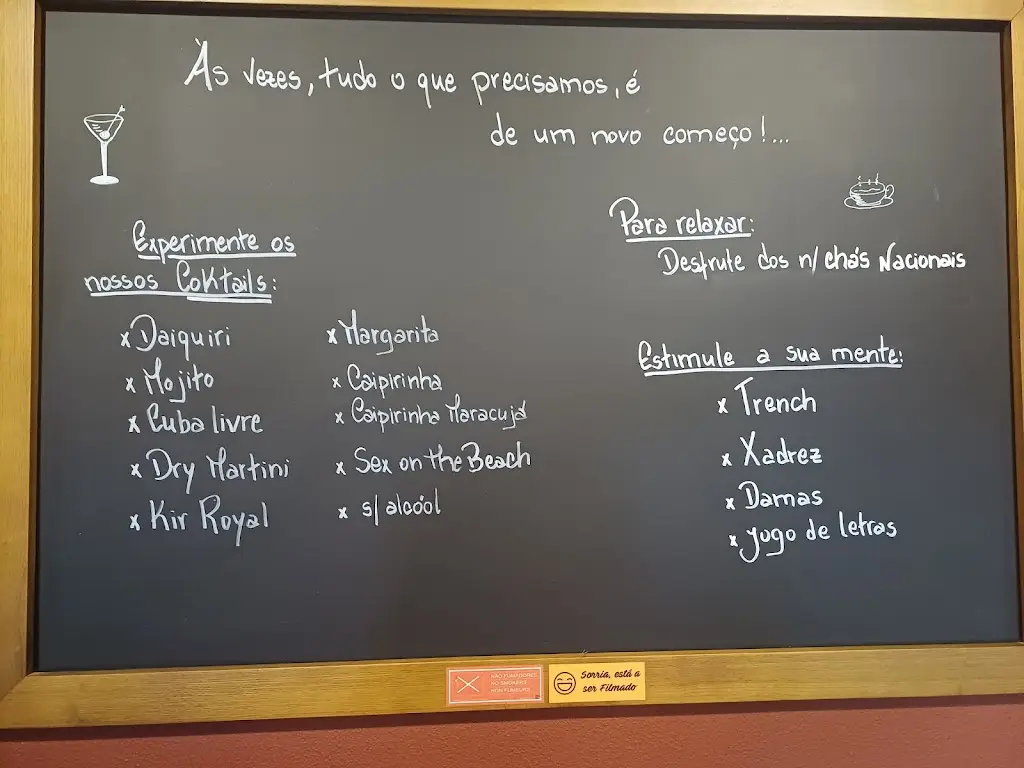 Às vezes, tudo o que precisamos, é
de um novo começo!...
Experimente os
nossos Coktails:
x Daiquiri
x Mojito
x Cuba livre
x Dry Martini
x Kir Royal
x Margarita
x Caipirinha
x Caipirinha Maracujá
x Sex on the Beach
x s/ alcoól
Para relaxar:
Desfrute dos n/ chás Nacionais
Estimule a sua mente:
x Trench
x Xadrez
x Damas
x jogo de letras
NÃO FUMADORES
NO SMOKERS
NON FUMEURS
Sorria, está a
ser Filmado